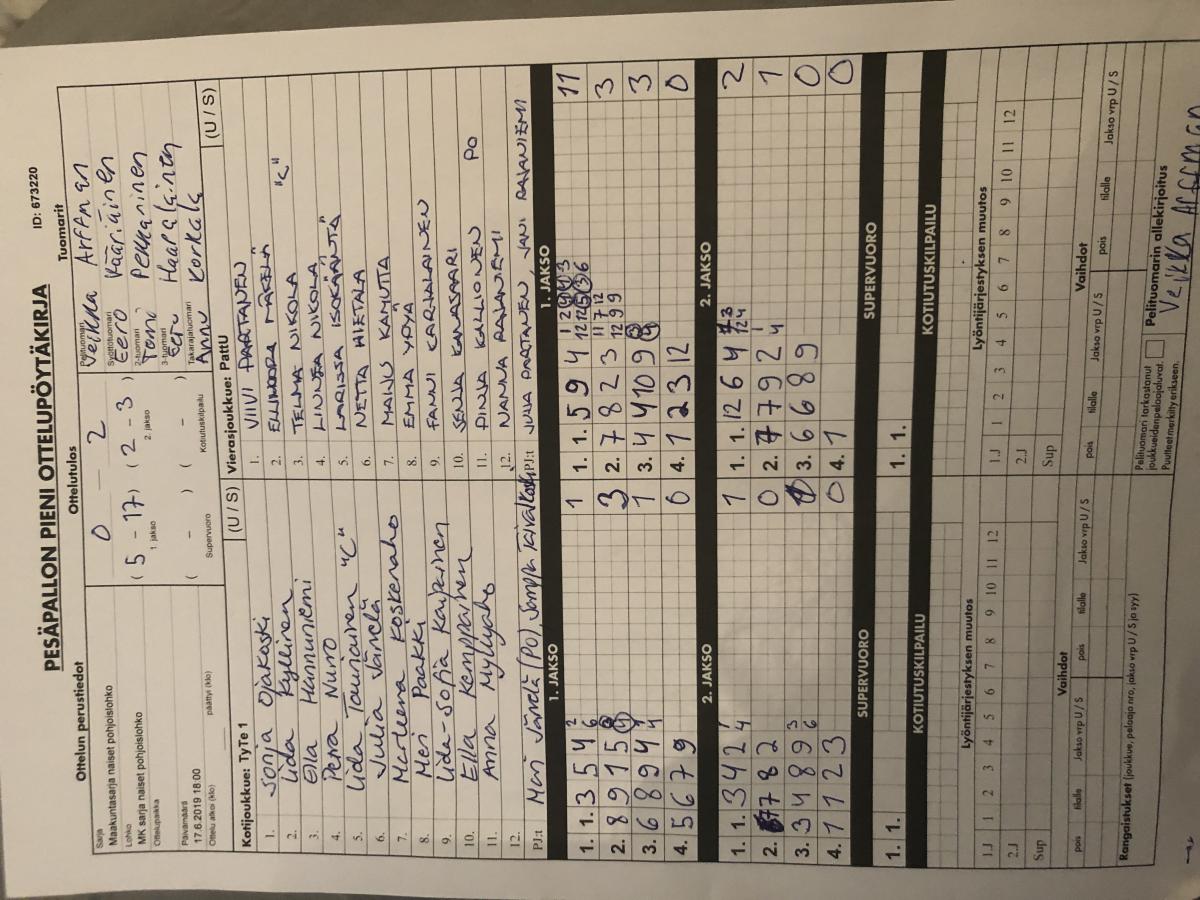 PESÄPALLON PIENI OTTELUPÖYTÄKIRJA
ID: 673220
Ottelun perustiedot
Ottelutulos
Tuomarit
Sarja
Maakuntasarja naiset pohjoislohko
Lohko
MK sarja naiset pohjoislohko
Ottelupaikka
Päivämäärä
17.6.2019 18:00
Ottelu alkoi (klo)
päättyi (klo)
0 – 2
( 5 - 17 ) ( 2 - 3 )
1. jakso
2. jakso
( - ) ( - )
Supervuoro
Kotiutuskilpailu
Pelituomari
Veikka Arffman
Syöttötuomari
Eero Kääriäinen
2-tuomari
Tomi Pekkarinen
3-tuomari
Eetu Haapalainen
Takarajatuomari
Annu Korkala
Kotijoukkue: TyTe 1
(U / S)
1. Sonja Ojakoski
2. Iida Kyllinen
3. Ella Hannuniemi
4. Petra Nurro
5. Iida Tauriainen "C"
6. Julia Väntelä
7. Marleena Koskenaho
8. Meri Paakki
9. Iida-Sofia Kaipainen
10. Ella Kemppainen
11. Anna Myllyaho
12.
PJ:t
Vierasjoukkue: PattU
(U / S)
1. VIIVI PAATANEN
2. ELLINOORA MÄKELÄ "C"
3. TELMA NIKOLA
4. LINNEA NIKOLA
5. LARISSA ISOKÄÄNTÄ
6. NETTA HIETALA
7. MAINU KAHUTTA
8. EMMA YPYÄ
9. FANNI KARJALAINEN
10. SENJA KANASAARI
11. PINJA KALLIONEN PO
12. NANNA RAJANIEMI
PJ:t JULIA PAATANEN, JANI RAJANIEMI
1. JAKSO
1. 1. 3 5 4 2 6 1
2. 8 9 1 5 3
3. 6 8 9 4 1
4. 5 6 7 9 0
1. JAKSO
1. 1. 5 9 4 11
2. 7 8 2 3 3
3. 4 4 10 9 3
4. 1 2 3 12 0
2. JAKSO
1. 1. 3 4 2 1
2. 7 8 2 0
3. 3 4 8 9 3 6
4. 1 1 2 3 0
2. JAKSO
1. 1. 12 6 4 2
2. 7 9 2 1
3. 6 6 8 9 0
4. 1 0
SUPERVUORO
1. 1.
SUPERVUORO
1. 1.
KOTIUTUSKILPAILU
KOTIUTUSKILPAILU
Lyöntijärjestyksen muutos
1.J 1 2 3 4 5 6 7 8 9 10 11 12
2.J
Sup
Lyöntijärjestyksen muutos
1.J 1 2 3 4 5 6 7 8 9 10 11 12
2.J
Sup
Vaihdot
pois tilalle Jakso vrp U / S pois tilalle Jakso vrp U / S
Vaihdot
pois tilalle Jakso vrp U / S pois tilalle Jakso vrp U / S
Rangaistukset (joukkue, pelaaja nro, jakso vrp U / S ja syy)
Pelituomari tarkastanut
joukkueiden pelaajaluvat.
Puutteet merkitty erikseen.
Pelituomarin allekirjoitus
Veikka Arffman